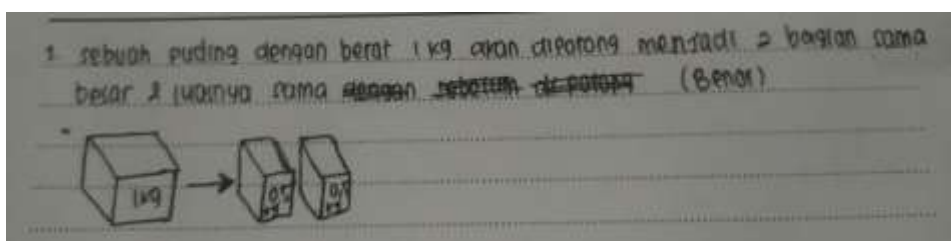 1. sebuah puding dengan berat 1 kg akan dipotong menjadi 2 bagian sama
besar & luasnya sama dengan sebelum di potong (Benar)
1kg
0,5 kg 0,5 kg